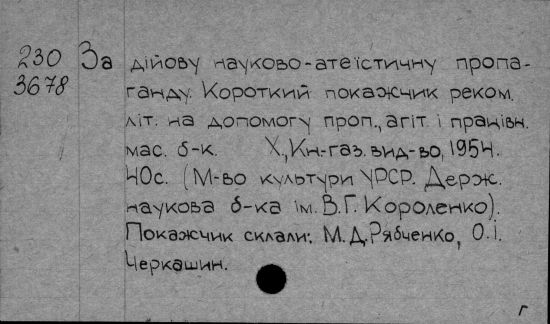 230 За дійову науково-атеїстичну пропа-
3678 ганду. Короткий покажчик реком.
літ. на допомогу проп., агіт. і працівн.
мас. б-к. Х., Кн.-газ. вид-во, 1954.
40с. (М-во культури УРСР. Держ.
наукова б-ка ім. В.Г. Короленко).
Покажчик склали: М.Д. Рябченко, О.І.
Черкашин.
г